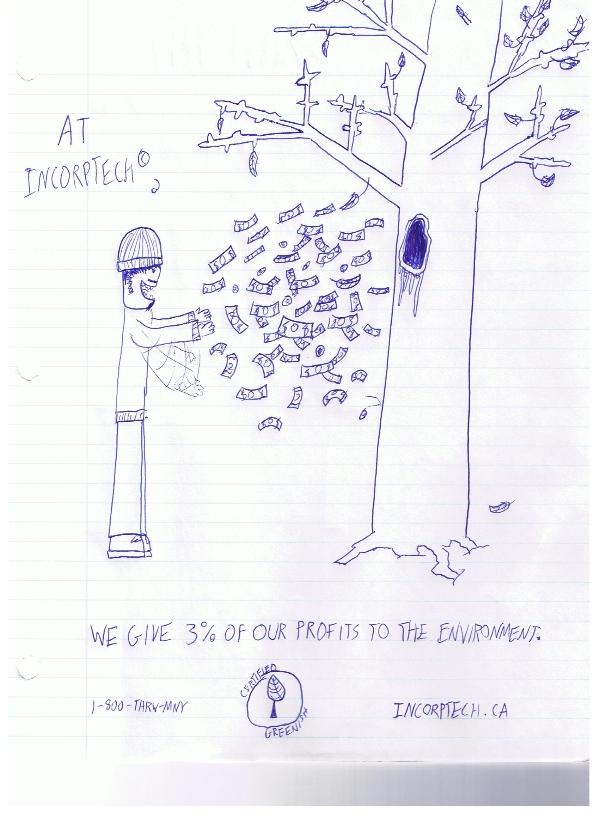 AT
INCORPTECH©,
WE GIVE 3% OF OUR PROFITS TO THE ENVIRONMENT.
1-800-TARW-MNY
CERTIFIED
GREENISH
INCORPTECH.CA